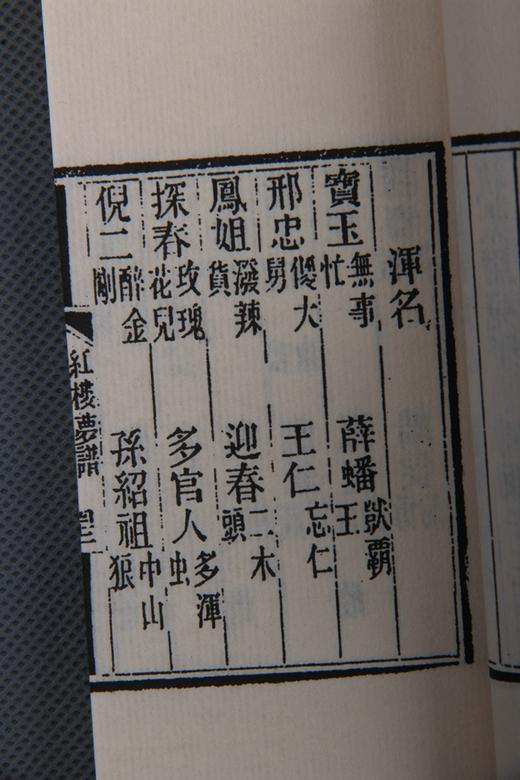 渾名
寶玉 無事忙 薛蟠 獃霸王
邢忠 傻大舅 王仁 忘仁
鳳姐 潑辣貨 迎春 二木頭
探春 玫瑰花兒 多官人 多渾虫
倪二 醉金剛 孫紹祖 中山狼
紅樓夢譜